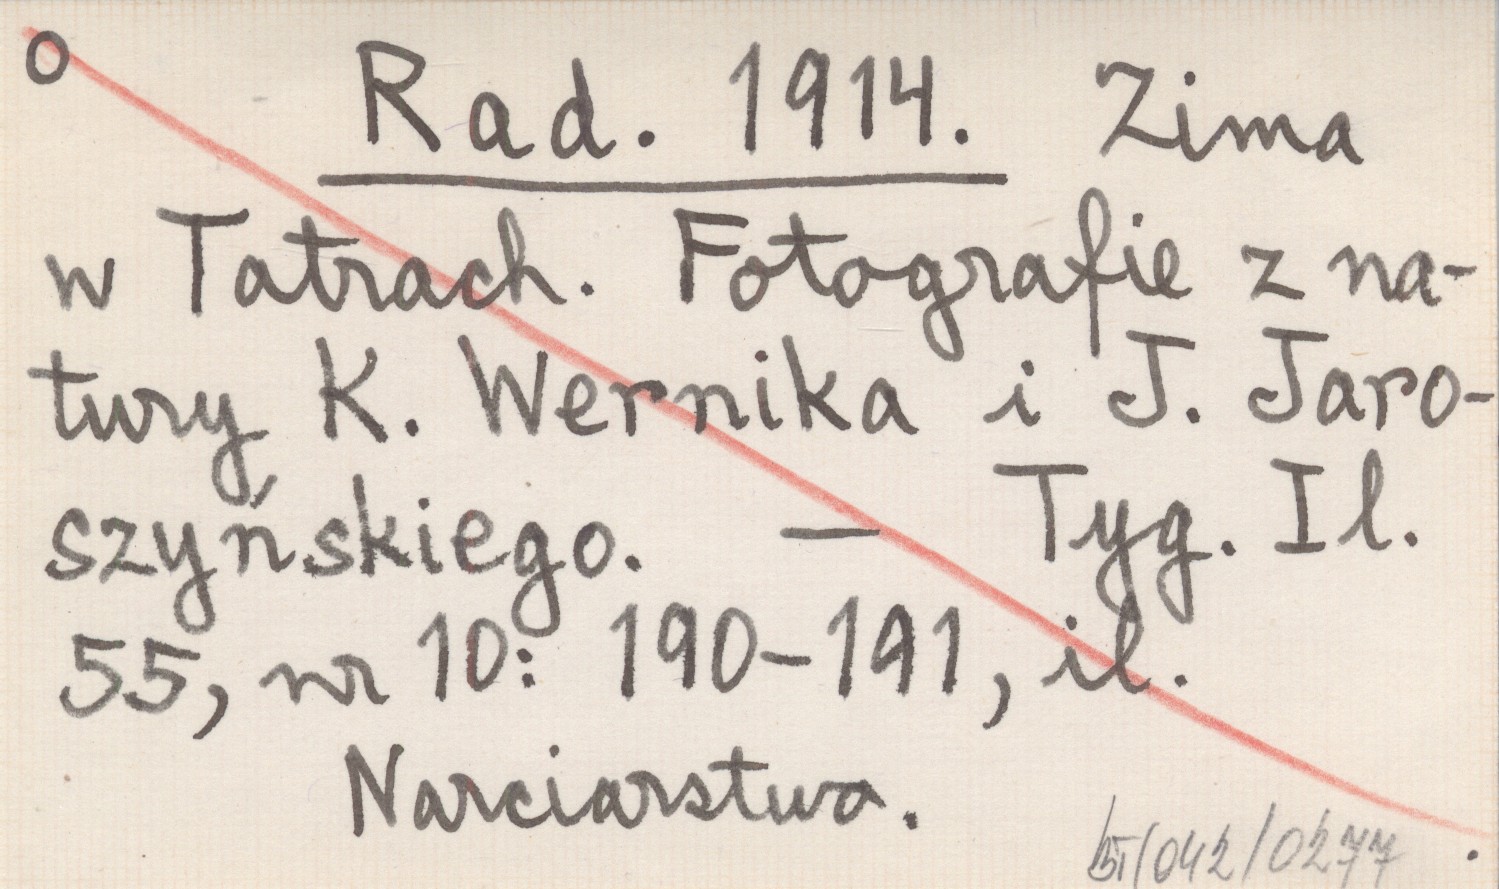 o Rad. 1914. Zima
w Tatrach. Fotografie z na-
tury K. Wernika i J. Jaro-
szyńskiego. — Tyg. Il.
55, nr 10: 190-191, il.
Narciarstwo.
BT/042/0277